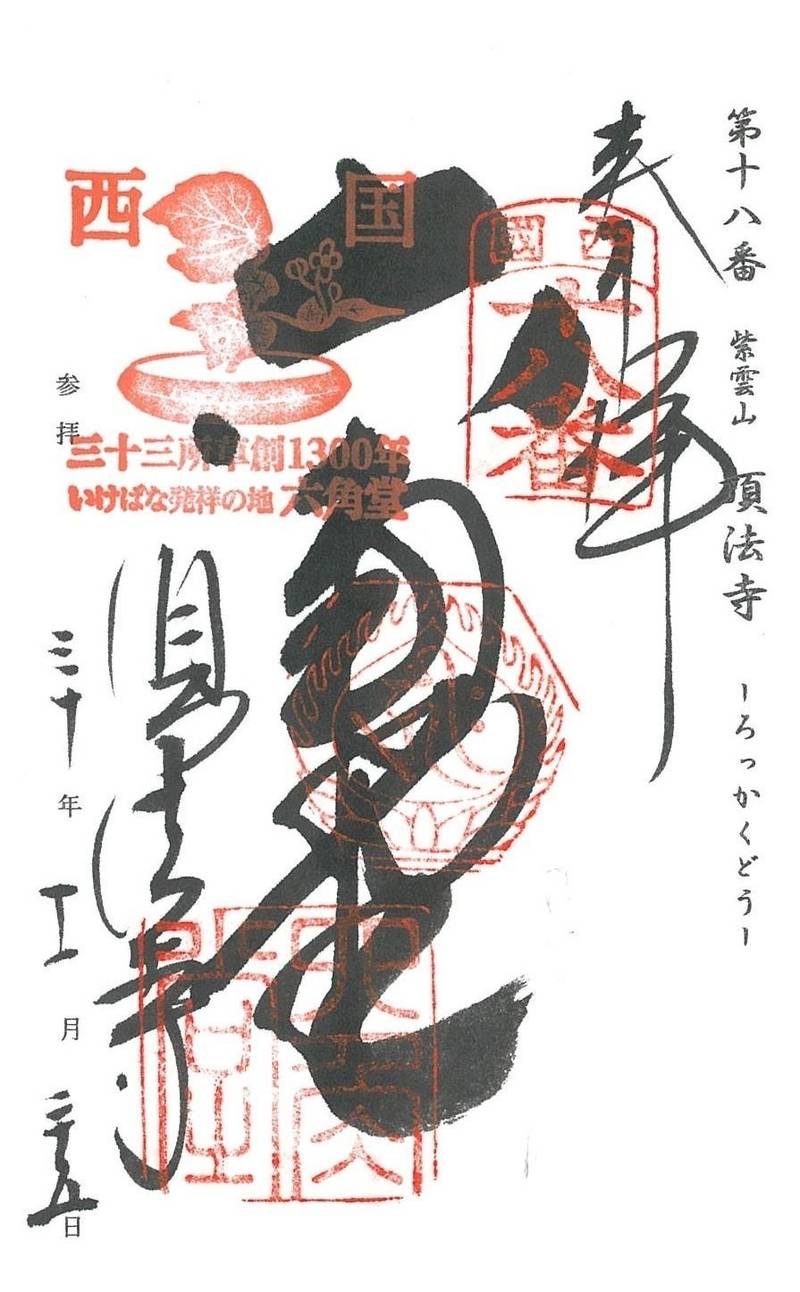 第十八番 紫雲山 頂法寺 ーろっかくどうー
奉拝
西國
十八番
六角堂
頂法寺
西国
三十三所草創1300年
いけばな発祥の地 六角堂
参拝 三十年 十一月 二十五日